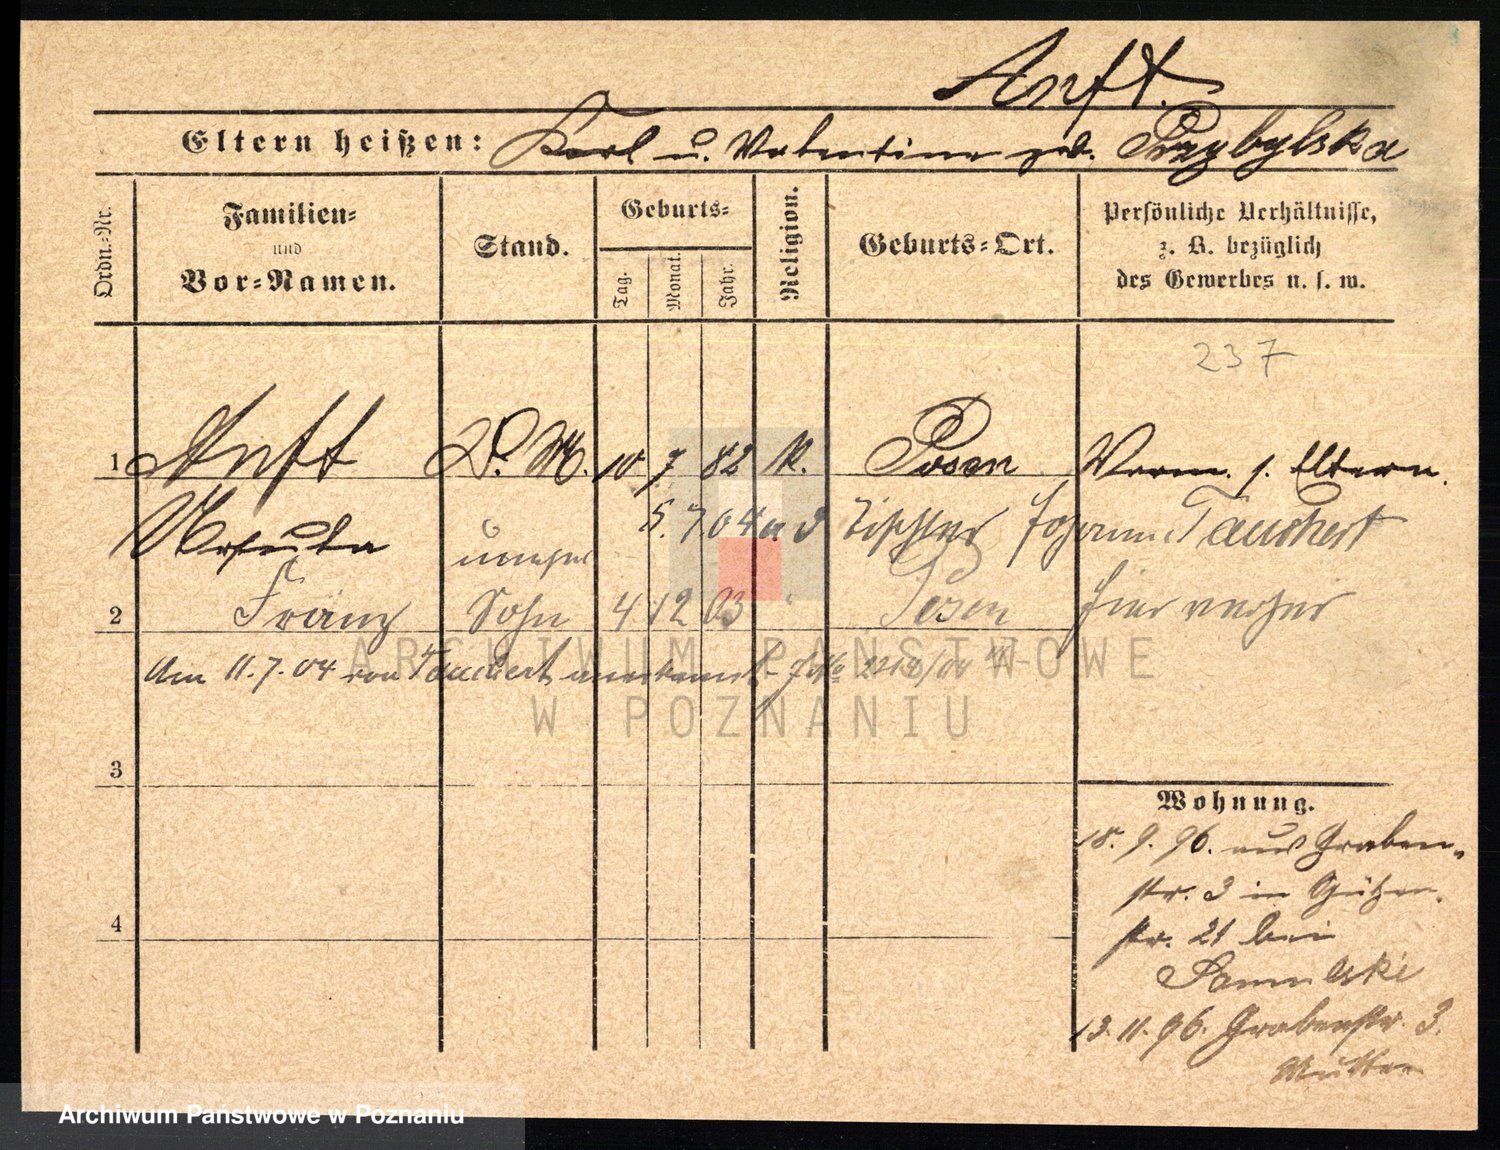 Anft.
Eltern heißen: Karl u. Valentine geb. Przybylska
Ordn.-Nr.
Familien-
und
Vor-Namen.
Stand.
Geburts-
Tag.
Monat.
Jahr.
Religion.
Geburts-Ort.
Persönliche Verhältnisse,
z. B. bezüglich
des Gewerbes u. s. w.
237
1 Anft D. M. 10 7 82 K. Posen Verm. s. Eltern.
Ursula 5. 7 04 a d Tischler Johann Tauchert
unehel
2 Franz Sohn 4 12 03 Posen hier verheir
Am 11.7.04 von Tauchert anerkannt
ARCHIWUM PAŃSTWOWE
W POZNANIU
3
Wohnung.
18. 9. 96. aus Graben-
str. 3 in Schützen-
4
str. 21 bei
13. 11. 96. Grabenstr. 3.
Mutter
Archiwum Państwowe w Poznaniu